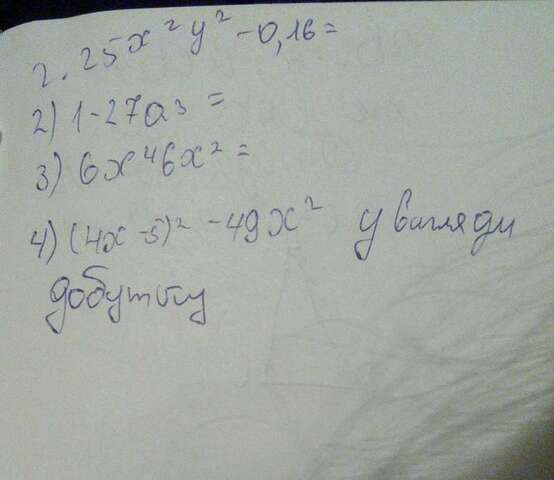 2. 25x²y² - 0,16 =
2) 1 - 27a³ =
3) 6x⁴6x² =
4) (4x - 5)² - 49x² у вигляди
добутку